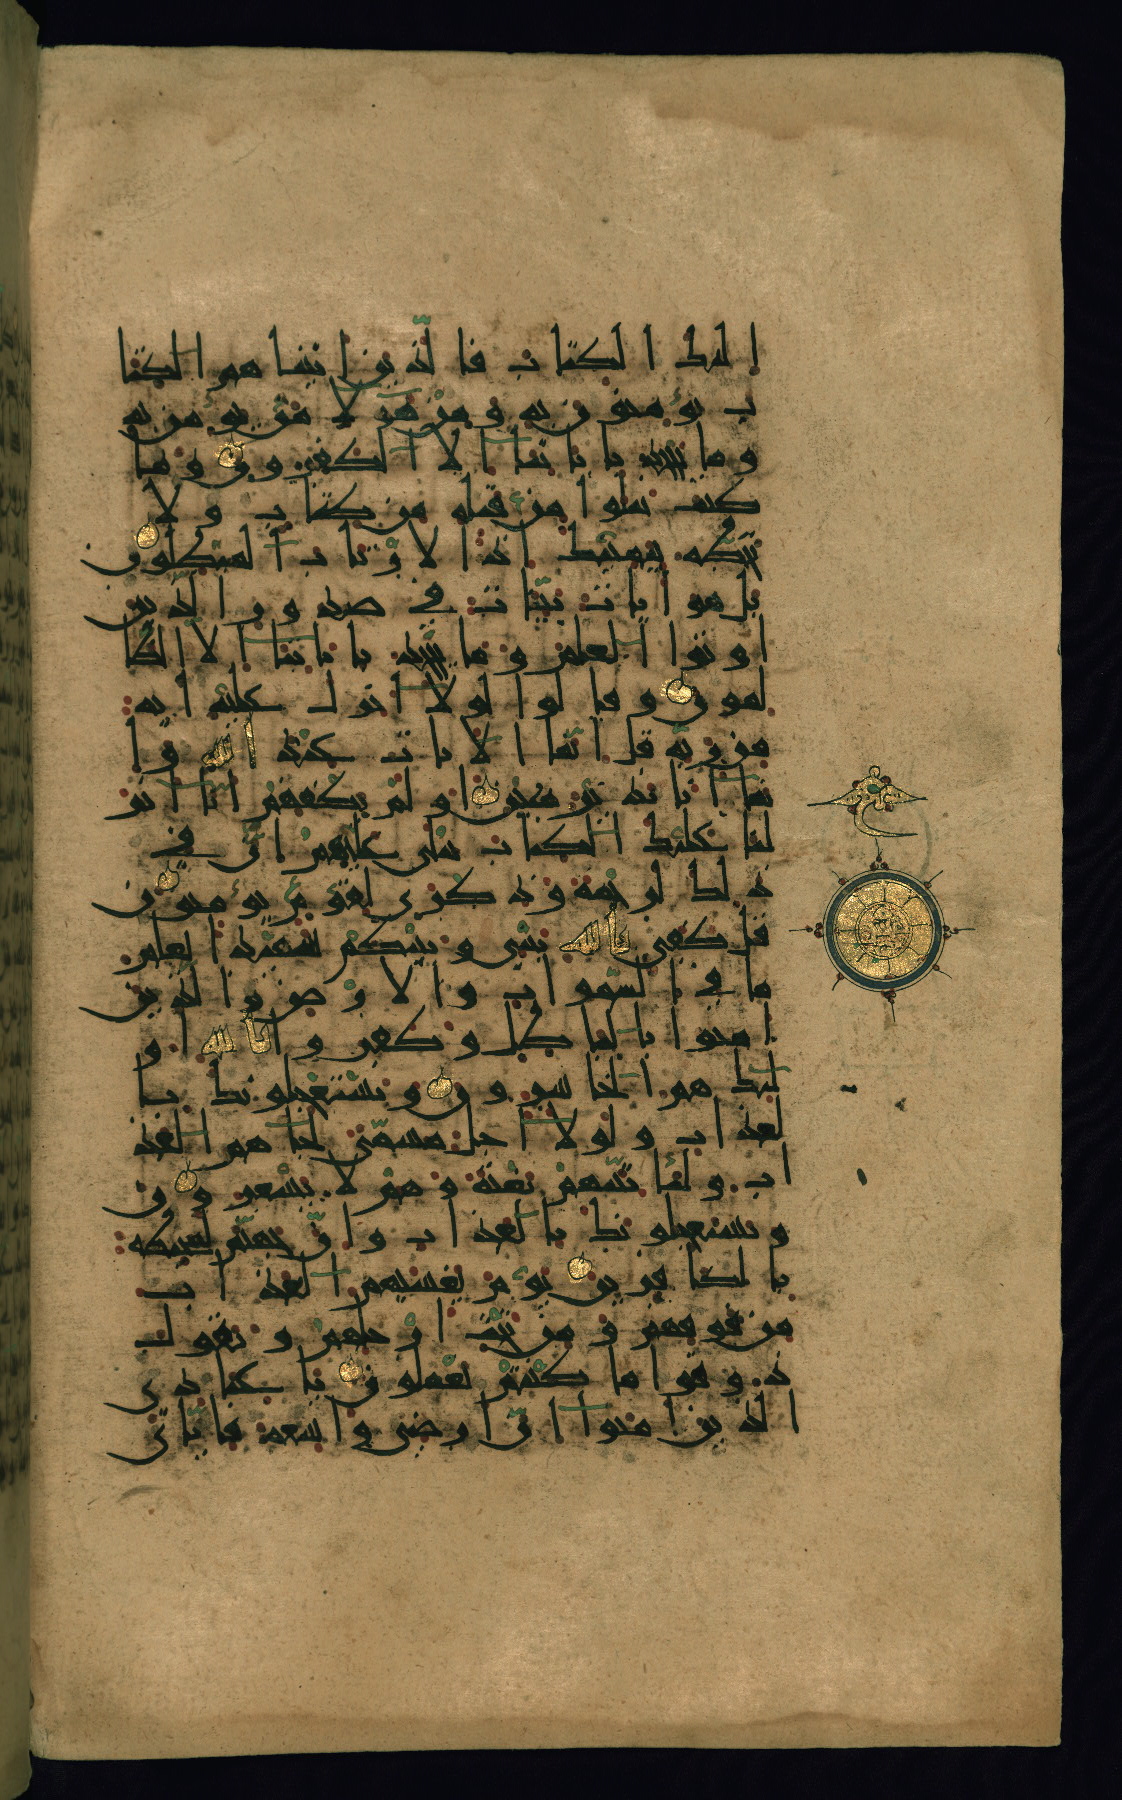 اليك الكتاب فالذين اتيناهم الكتا
ب يؤمنون به ومن هؤلا من يؤمن به
وما يجحد باياتنا الا الكفرون وما
كنت تتلوا من قبله من كتاب ولا
تخطه بيمينك اذا لارتاب المبطلون
بل هو ايات بينات في صدور الذين
اوتوا العلم وما يجحد باياتنا الا الظا
لمون وقالوا لولا انزل عليه اية
من ربه قل انما الايات عند الله وا
نما انا نذير مبين اولم يكفهم انا انز
لنا عليك الكتاب يتلى عليهم ان في
ذلك لرحمة وذكرى لقوم يؤمنون
قل كفى بالله بيني وبينكم شهيدا يعلم
ما في السموات والارض والذين
امنوا بالباطل وكفروا بالله او
لئك هم الخاسرون ويستعجلونك با
لعذاب ولولا اجل مسمى لجاهم العذ
اب ولياتينهم بغتة وهم لا يشعرون
ويستعجلونك بالعذاب وان جهنم لمحيطة
بالكافرين يوم يغشيهم العذاب
من فوقهم ومن تحت ارجلهم ونقول
ذوقوا ما كنتم تعملون يا عبادي
الذين امنوا ان ارضي واسعة فاياي